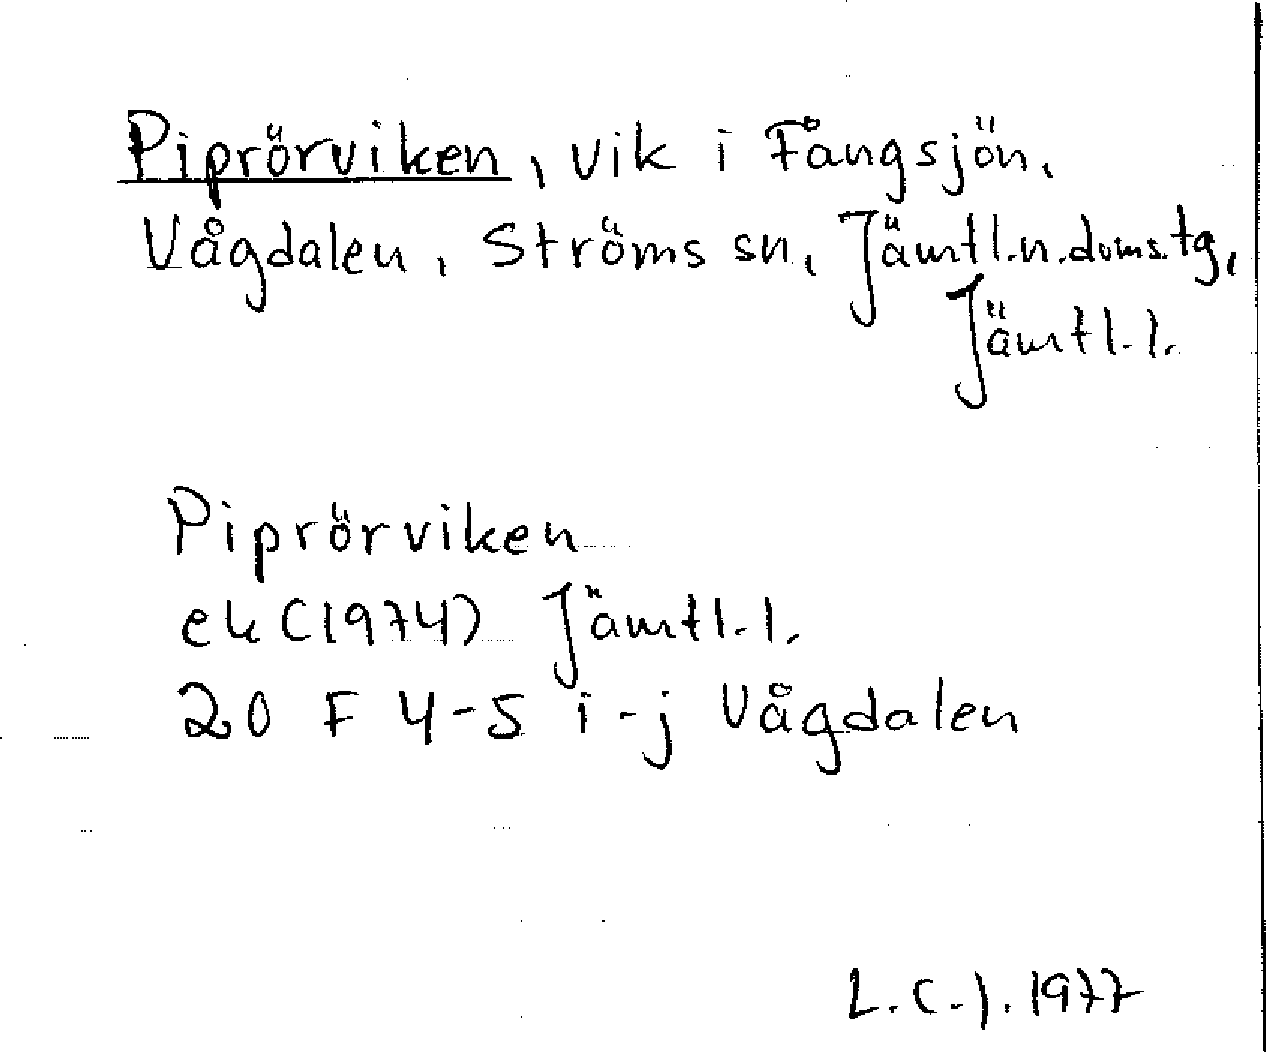 Piprörviken, vik i Fångsjön,
Vågdalen, Ströms sn, Jämtl.n.doms.tg,
Jämtl.l.
Piprörviken
ek (1974) Jämtl.l.
20 F 4-5 i-j Vågdalen
L.C-J. 1977